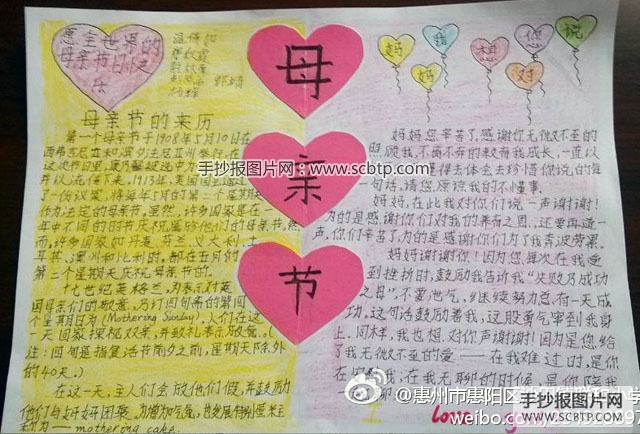 愿全世界的
母亲节日快
乐
母
亲
节
妈
妈
我
想
对
您
说
母亲节的来历
第一个母亲节于1908年5月10日在
西弗吉尼亚和宾夕法尼亚州举行,在
这次节日里,康乃馨被选中为
并以此流传下来。1913年,美国国会通过
了一份议案,将每年5月的第二个星期天
作为法定的母亲节。虽然,许多国家是在
年中不同的时节庆祝属于他们的母亲节,然
而,许多国家如丹麦、芬兰、意大利、土
耳其、澳洲和比利时,都在五月的
第二个星期天庆祝母亲节的。
十七世纪英格兰,为表示对英
国母亲们的敬意,乃订四旬斋的第四
个星期日为(Mothering Sunday),人们在这
一天回家探视双亲,并致礼表示敬意。(
注:四旬斋指复活节前夕之前,星期天除外
的40天。)
在这一天,主人们会放他们假,并鼓励
他们与好好团聚
mothering cake.
妈妈您辛苦了,感谢你无微不至的
照顾我,不商不弃的教育我成长,一直以
得去体会去珍惜你说的每
一句话,请您原谅我的不懂事。
妈妈,在此我对你们说一声谢谢!
为的是感谢你们对我的养育之恩,还要再道一
声,你们辛苦了,为的是感谢你们为了我奔波劳累。
妈妈谢谢谢!因为您每次在我受
到挫折时,鼓励我告诉我“失败乃成功
之母”,不要泄气,继续努力总有一天成
功,这句话鼓励着我,这股勇气牢到我身
上。同样,我也想对你声谢谢!因为是您给
了我无微不至的爱——在我难过时,是你
在安慰我,在我无聊的时候,是你陪我
Love
手抄报图片网:www.scbtp.com
@惠州市惠阳区
weibo.com/
手抄报图片网
WWW.SCBTP.COM